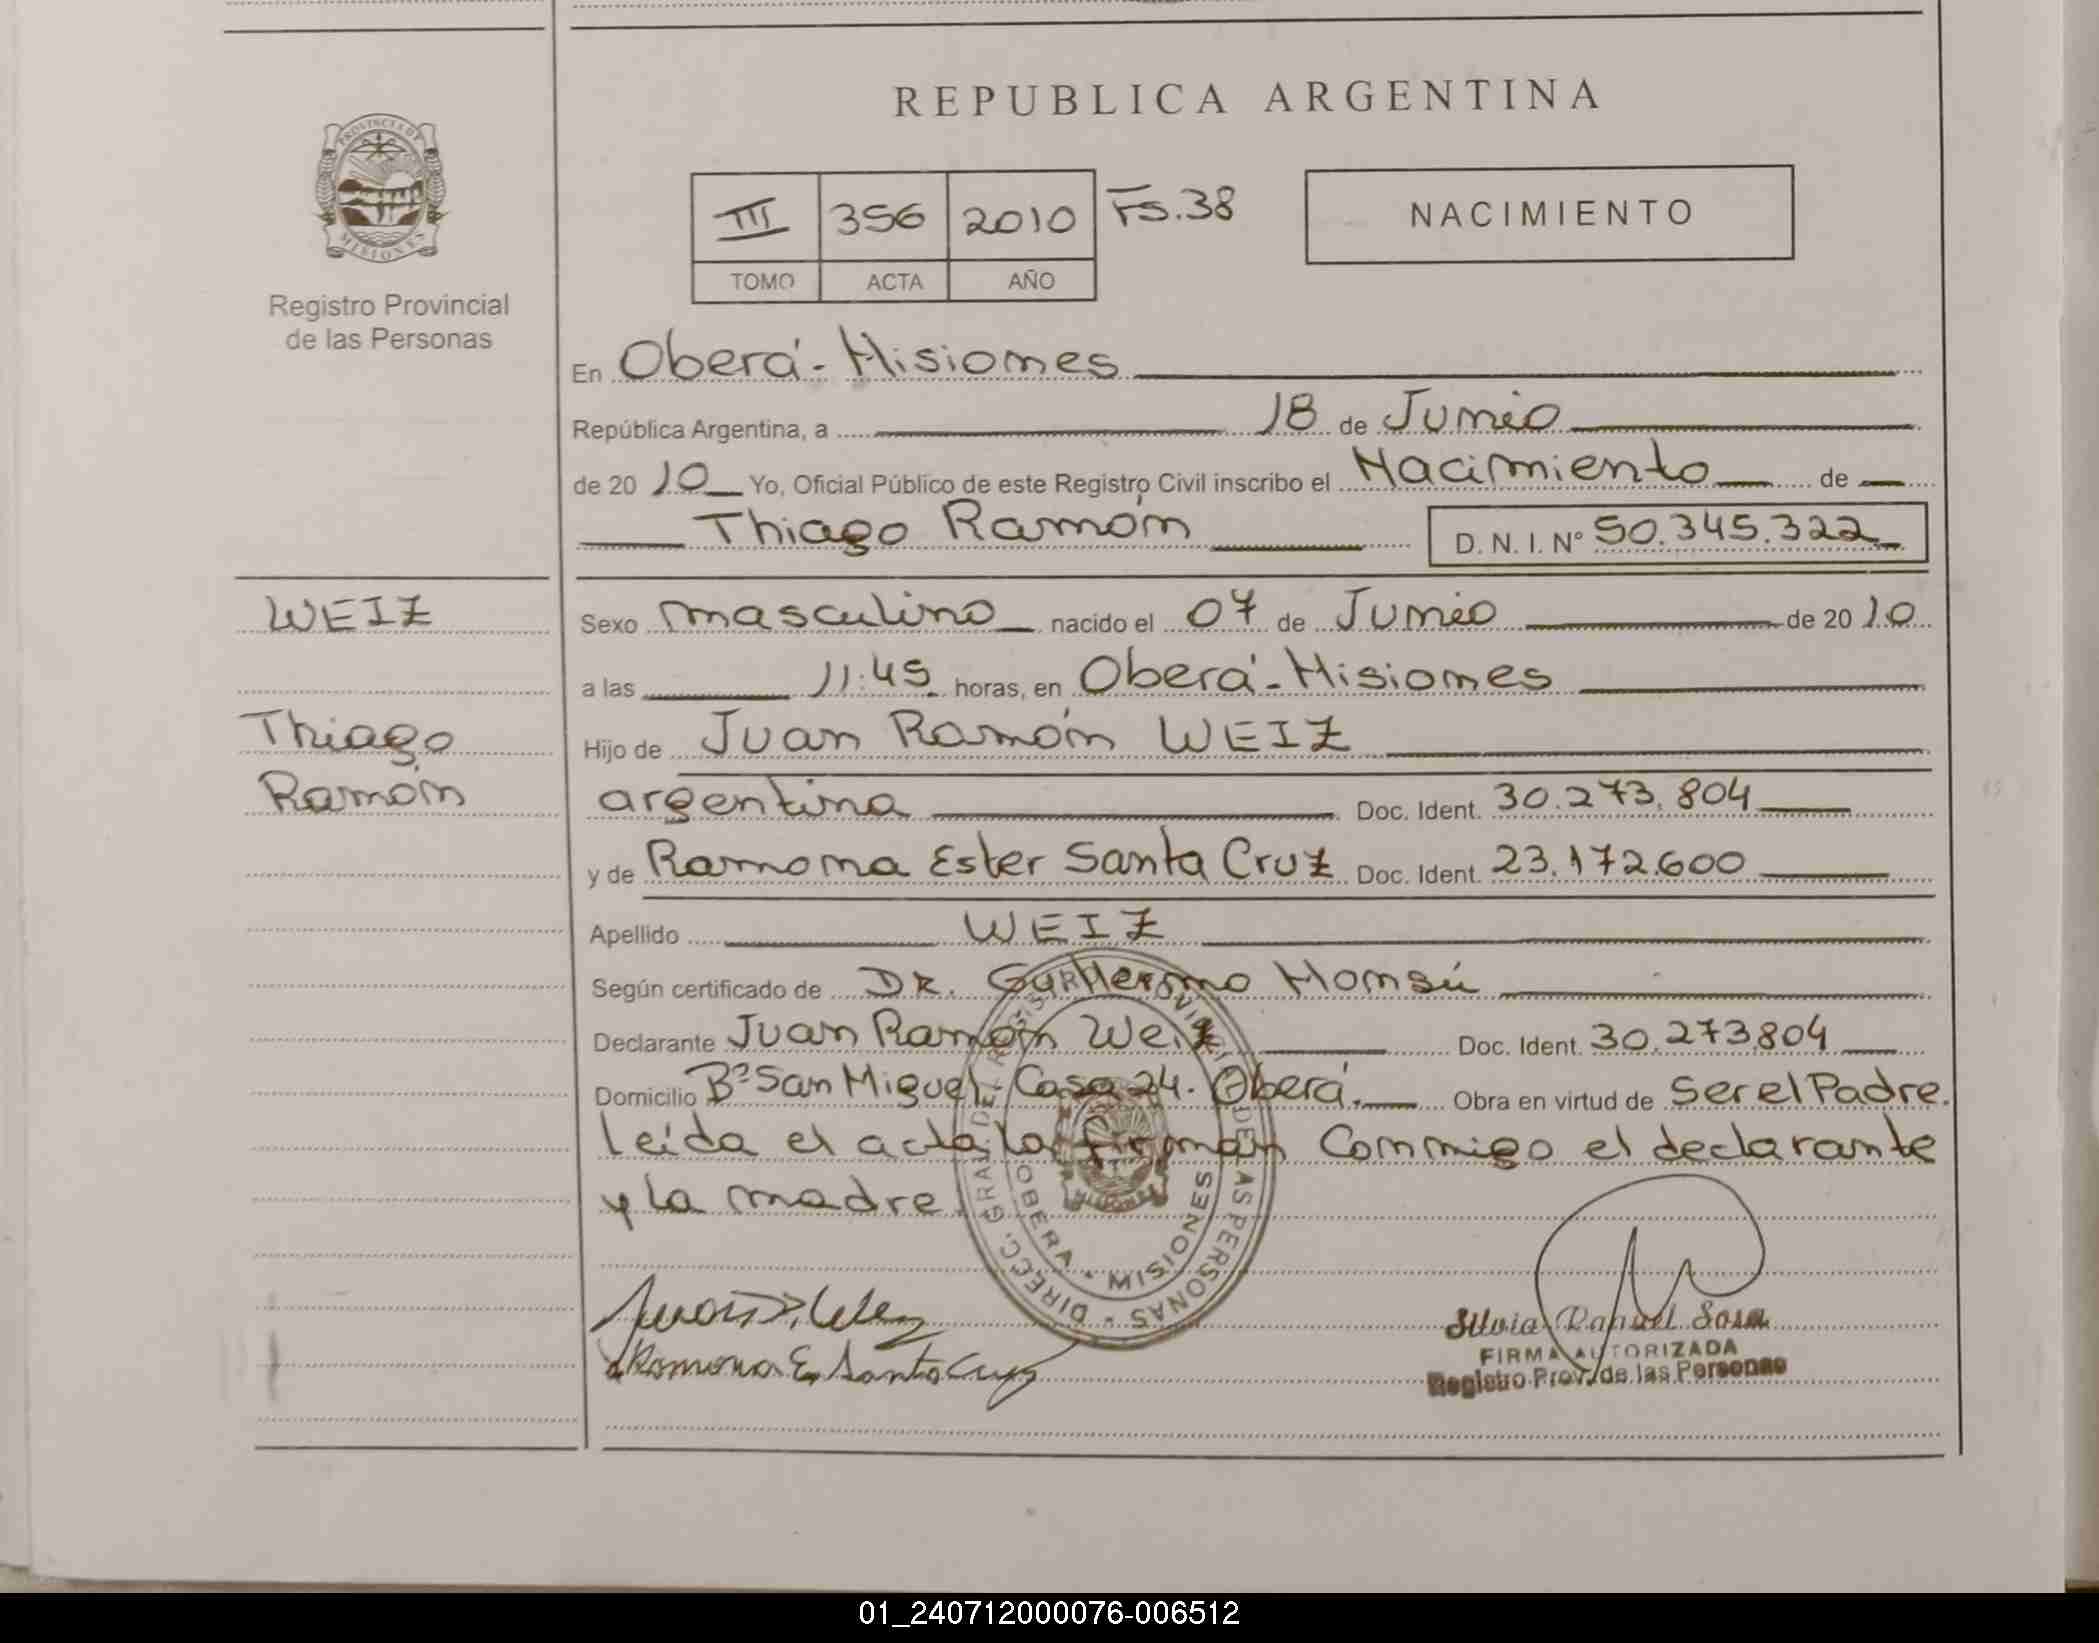 REPUBLICA ARGENTINA
PROVINCIA DE
MISIONES
Registro Provincial
de las Personas
III 356 2010 Fs. 38
TOMO ACTA AÑO
NACIMIENTO
En Oberá - Misiones
República Argentina, a 18 de Junio
de 20 10 Yo, Oficial Público de este Registro Civil inscribo el Nacimiento de
Thiago Ramón D. N. I. N° 50.345.322
WEIZ
Thiago
Ramón
Sexo masculino nacido el 07 de Junio de 20 10
a las 11:45 horas, en Oberá - Misiones
Hijo de Juan Ramón WEIZ
argentina Doc. Ident. 30.273.804
y de Ramona Ester Santa Cruz Doc. Ident. 23.172.600
Apellido WEIZ
Según certificado de DR. Guillermo Momsú
Declarante Juan Ramón Weiz Doc. Ident. 30.273.804
Domicilio Bº San Miguel, Casa 24. Oberá. Obra en virtud de ser el Padre.
Leída el acta la firman Conmigo el declarante
y la madre.
DIRECC. GRAL. DEL REGIST. PROVINCIAL DE LAS PERSONAS
OBERA - MISIONES
Juan R. Weiz
Ramona E. Santa Cruz
Silvia Raquel Sosa
FIRMA AUTORIZADA
Registro Prov. de las Personas
01_240712000076-006512